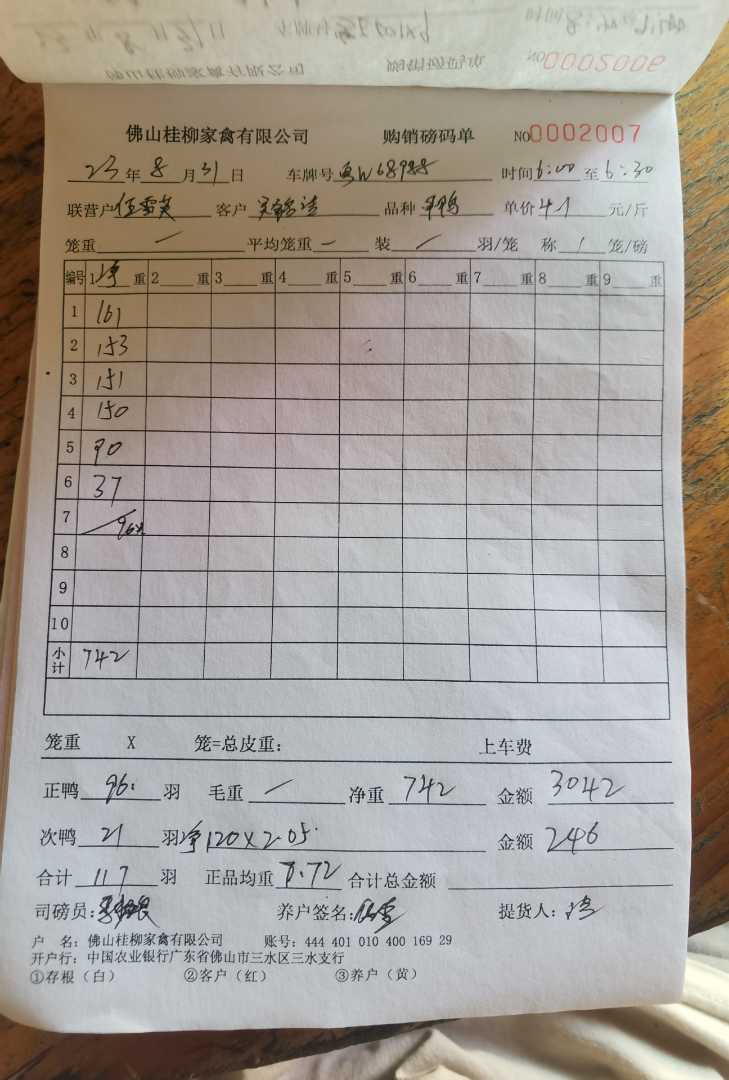 佛山桂柳家禽有限公司 购销磅码单 NO0002007
23年8月31日 车牌号 W68988 时间6:00至6:30
联营户 客户 品种 鸭 单价4.1元/斤
笼重 一 平均笼重 一 装 / 羽/笼 称 / 笼/磅
编号 1净重 2重 3重 4重 5重 6重 7重 8重 9重
1 161
2 153
3 151
4 150
5 90
6 37
7 96
8
9
10
小计 742
笼重 X 笼=总皮重: 上车费
正鸭 96 羽 毛重 / 净重 742 金额 3042
次鸭 21 羽 净120X2.05 金额 246
合计 117 羽 正品均重 7.72 合计总金额
司磅员: 养户签名: 提货人:
户 名: 佛山桂柳家禽有限公司 账号: 444 401 010 400 169 29
开户行: 中国农业银行广东省佛山市三水区三水支行
①存根(白) ②客户(红) ③养户(黄)